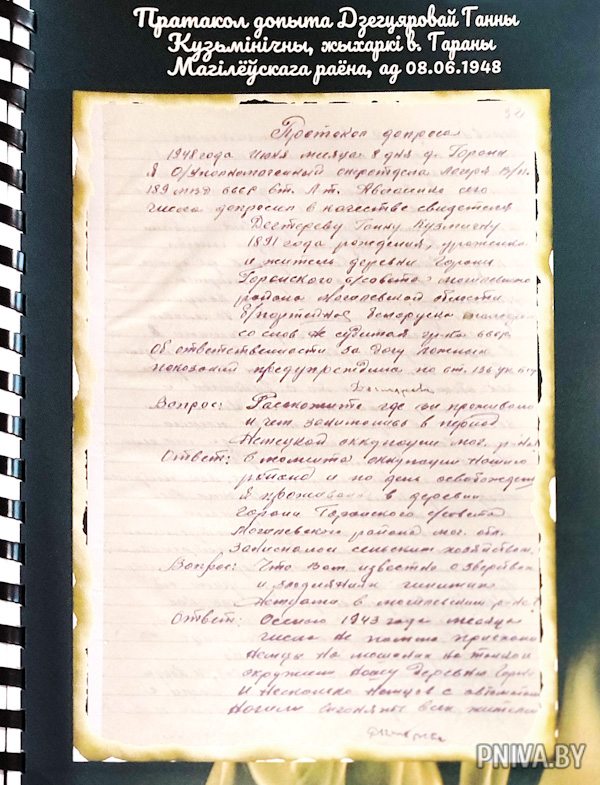 Пратакол допыта Дзегцяровай Ганны
Кузьмінічны, жыхаркі в. Гараны
Магілёўскага раёна, ад 08.06.1948
Протокол допроса
1948 года Июня месяца 8 дня д. Горони
Я О/Уполномоченный лагеря
189 МВД БССР Л-т. сего
числа допросил в качестве свидетеля
Дегтереву Ганну Кузминичну
1891 года рождения, уроженка
и житель деревни Горони
Горонского с/совета
района Могилевской области
б/партейная белоруска
со слов не судимая гр-ка БССР
Об ответственности за дачу ложных
показаний предупреждена по ст. 136 УК БССР
Вопрос: Расскажите где вы проживали
и чем занимались в период
Немецкой оккупации мог. р-на?
Ответ: В момента оккупации нашего
и по день освобождения
я проживала в деревни
Горони Горонского с/совета
Могилевского района мог. обл.
занималась сельским хозяйством.
Вопрос: Что вам известно о зверствах
и злодияниях
в могилевском р-не?
Ответ: Осенью 1943 года месяца
числа не помню приехали
немцы на машинах
окружили нашу деревню Горони
и несколько немцев с автоматами
начали сгонять всех жителей
PNIVA.BY